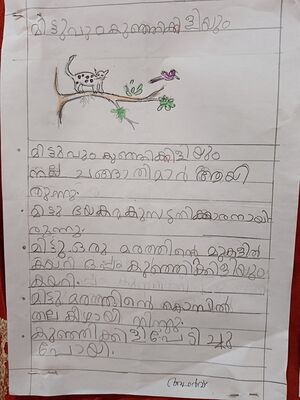 മിട്ടുവും കുഞ്ഞിക്കിളിയും
മിട്ടുവും കുഞ്ഞിക്കിളിയും
നല്ല ചങ്ങാതിമാർ ആയി
രുന്നു.
മിട്ടു ഭയങ്കര കുസൃതിക്കാരനായി
രുന്നു.
മിട്ടു ഒരു മരത്തിന്റെ മുകളിൽ
കയറി ഒപ്പം കുഞ്ഞിക്കിളിയും
കയറി.
മിട്ടു മരത്തിന്റെ കൊമ്പിൽ
തല കീഴായി നിന്നു.
കുഞ്ഞിക്കിളി പേടിച്ചു
പോയി.